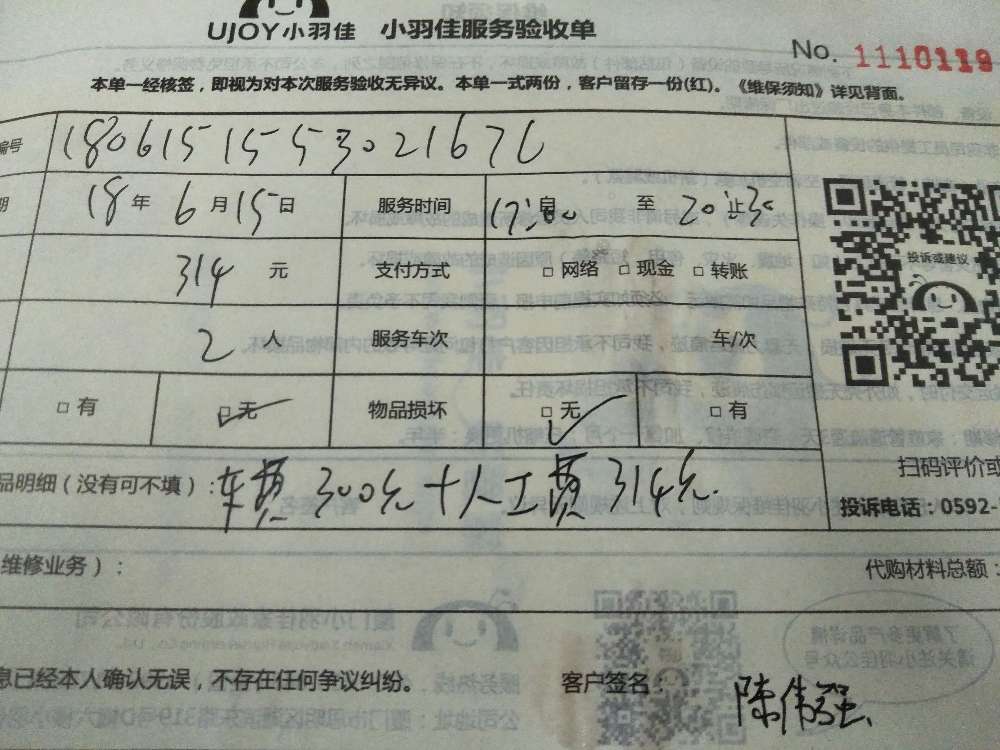 UJOY小羽佳 小羽佳服务验收单
No. 1110119
本单一经核签，即视为对本次服务验收无异议。本单一式两份，客户留存一份(红)。《维保须知》详见背面。
编号 180615155302167
期 18年6月15日 服务时间 至
314元 支付方式 □网络 □现金 □转账
投诉或建议
2人 服务车次 车/次
□有 □无 物品损坏 □无 □有
扫码评价或
品明细（没有可不填）：车费300元十人工费314元.
投诉电话：0592-
维修业务）： 代购材料总额：
息已经本人确认无误，不存在任何争议纠纷。 客户签名： 陈伟强